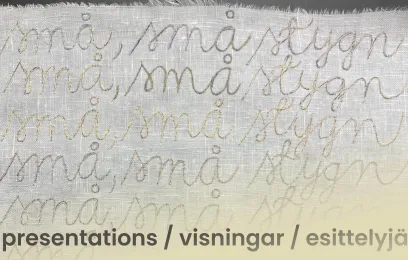 små, små stygn
små, små, stygn
små, små, stygn
små, små stygn
små, små stygn
presentations / visningar / esittelyjä